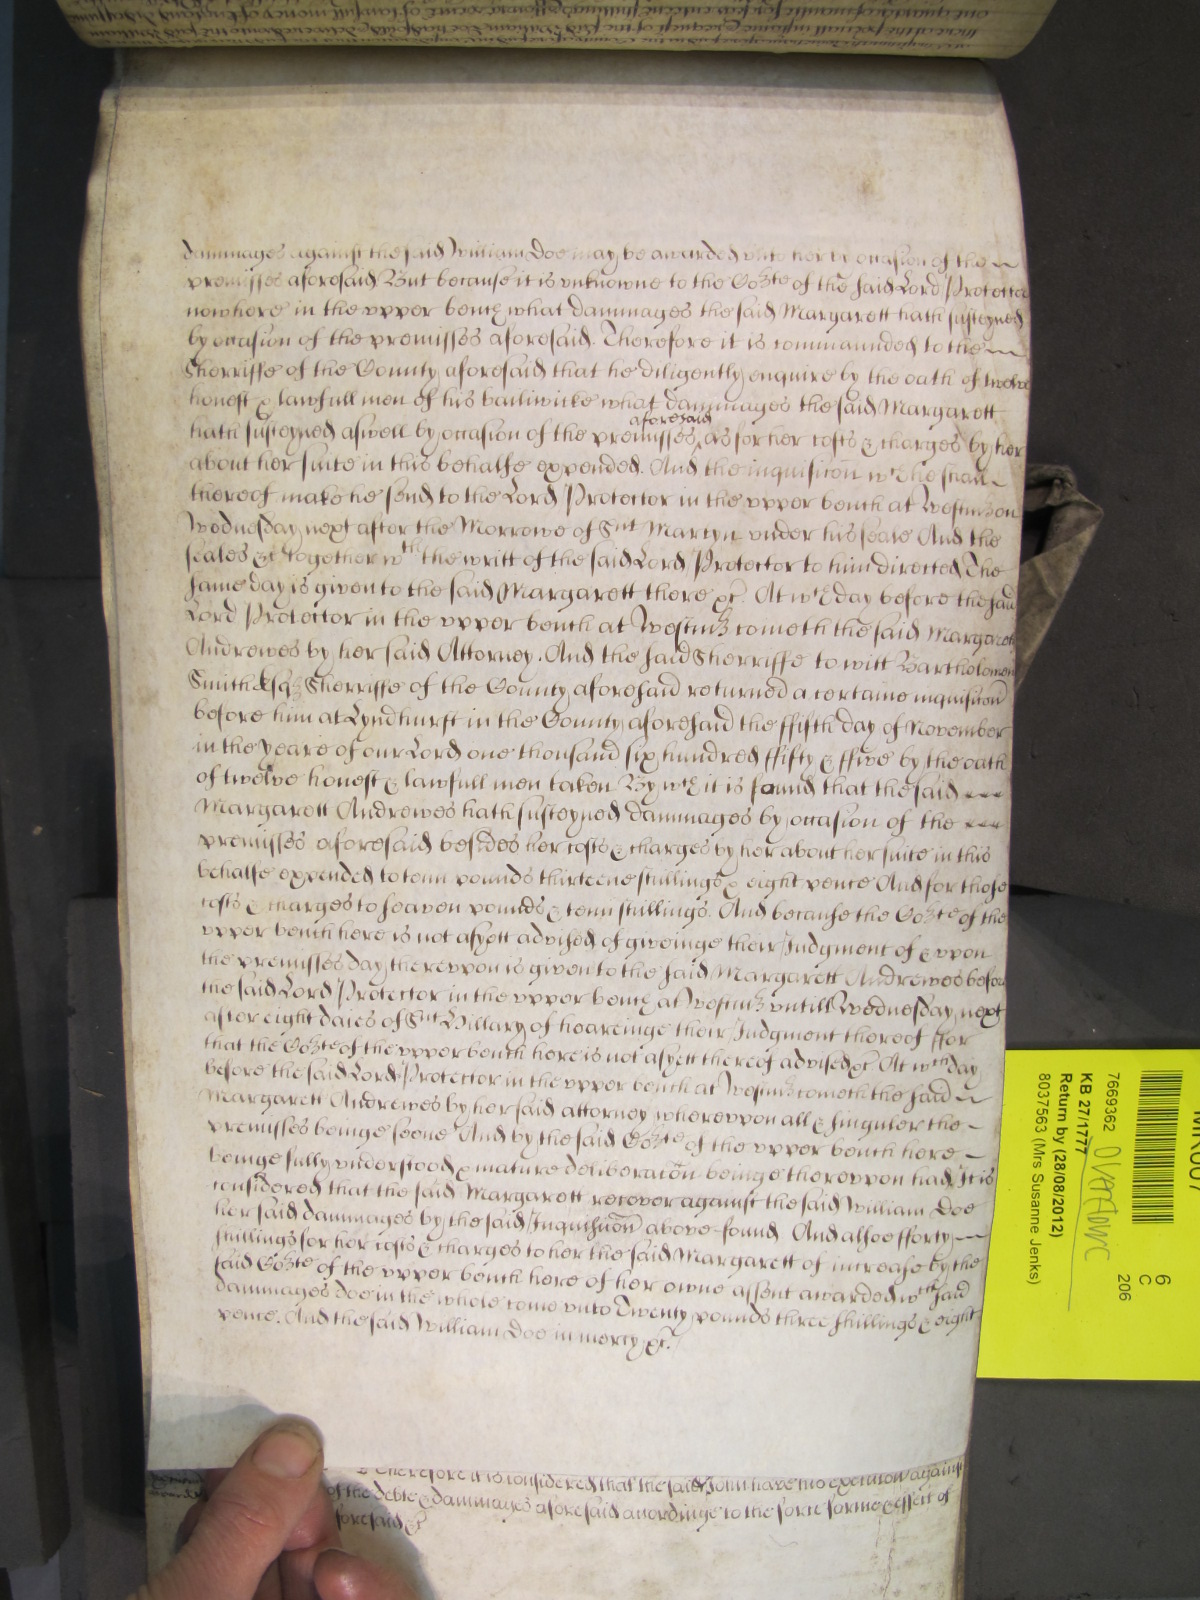 dammages against the said William Doe may be awarded unto her by occasion of the
premisses aforesaid But because it is unknowne to the Co:rte of the said Lord Protector
nowhere in the upper bench what dammages the said Margarett hath susteyned
by occasion of the premisses aforesaid. Therefore it is commaunded to the
Sherriffe of the County aforesaid that he diligently enquire by the oath of twelve
honest & lawfull men of his bailiwicke what dammages the said Margarett
aforesaid
hath susteyned aswell by occasion of the premisses as for her costs & charges by her
about her suite in this behalfe expended. And the inquisicon wch he shall
thereof make he send to the Lord Protector in the upper bench at Westmr on
Wednesday next after the Morrowe of Snt Martyn under his seale And the
seales &c together wth the writt of the said Lord Protector to him directed The
same day is given to the said Margarett there &c. At wch day before the said
Lord Protector in the upper bench at Westmr cometh the said Margarett
Andrewes by her said Attorney. And the said Sherriffe to witt Bartholomew
Smith Esqr Sherriffe of the County aforesaid returned a certaine inquisicon
before him at Lyndhurst in the County aforesaid the ffifth day of November
in the yeare of our Lord one thousand six hundred ffifty & ffive by the oath
of twelve honest & lawfull men taken By wch it is found that the said
Margarett Andrewes hath susteyned dammages by occasion of the
premisses aforesaid besides her costs & charges by her about her suite in this
behalfe expended to tenn pounds thirteene shillings & eight pence And for those
costs & charges to seaven pounds & tenn shillings. And because the Co:rte of the
upper bench here is not as yett advised of giveinge their Judgment of & upon
the premisses day thereupon is given to the said Margarett Andrewes before
the said Lord Protector in the upper bench at Westmr untill Wednesday next
after eight daies of Snt Hillary of heareinge their Judgment thereof ffor
that the Co:rte of the upper bench here is not as yett thereof advised &c. At wch day
before the said Lord Protector in the upper bench at Westmr cometh the said
Margarett Andrewes by her said attorney whereupon all & singuler the
premisses beinge seene And by the said Co:rte of the upper bench here
beinge fully understood & mature deliberacon beinge thereupon had It is
considered that the said Margarett recover against the said William Doe
her said dammages by the said Inquisicon above found And alsoe fforty
shillings for her costs & charges to her the said Margarett of increase by the
said Co:rte of the upper bench here of her owne assent awarded wch said
dammages doe in the whole come unto Twenty pounds three shillings & eight
pence. And the said William Doe in mercy &c.
Therefore it is considered that the said John have his execution against
of the debte & dammages aforesaid accordinge to the force forme & effect of
foresaid &c
7669362
KB 27/1777
Return by (28/08/2012)
8037563 (Mrs Susanne Jenks)
6
C
206